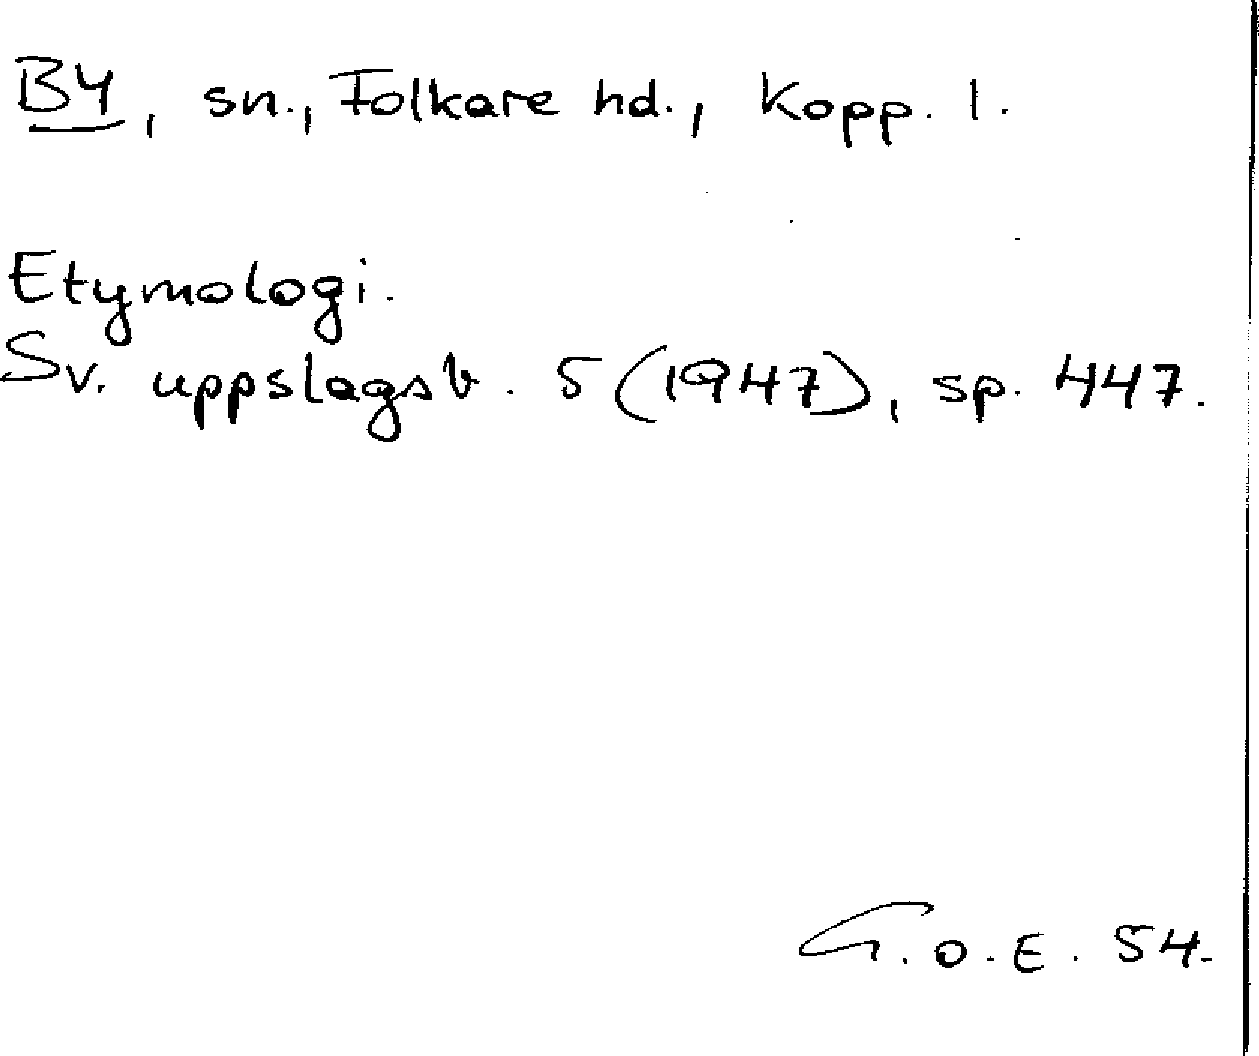 BY, sn., Folkare hd., Kopp. l.
Etymologi.
Sv. uppslagsb. 5 (1947), sp. 447.
G.O.E. 54.